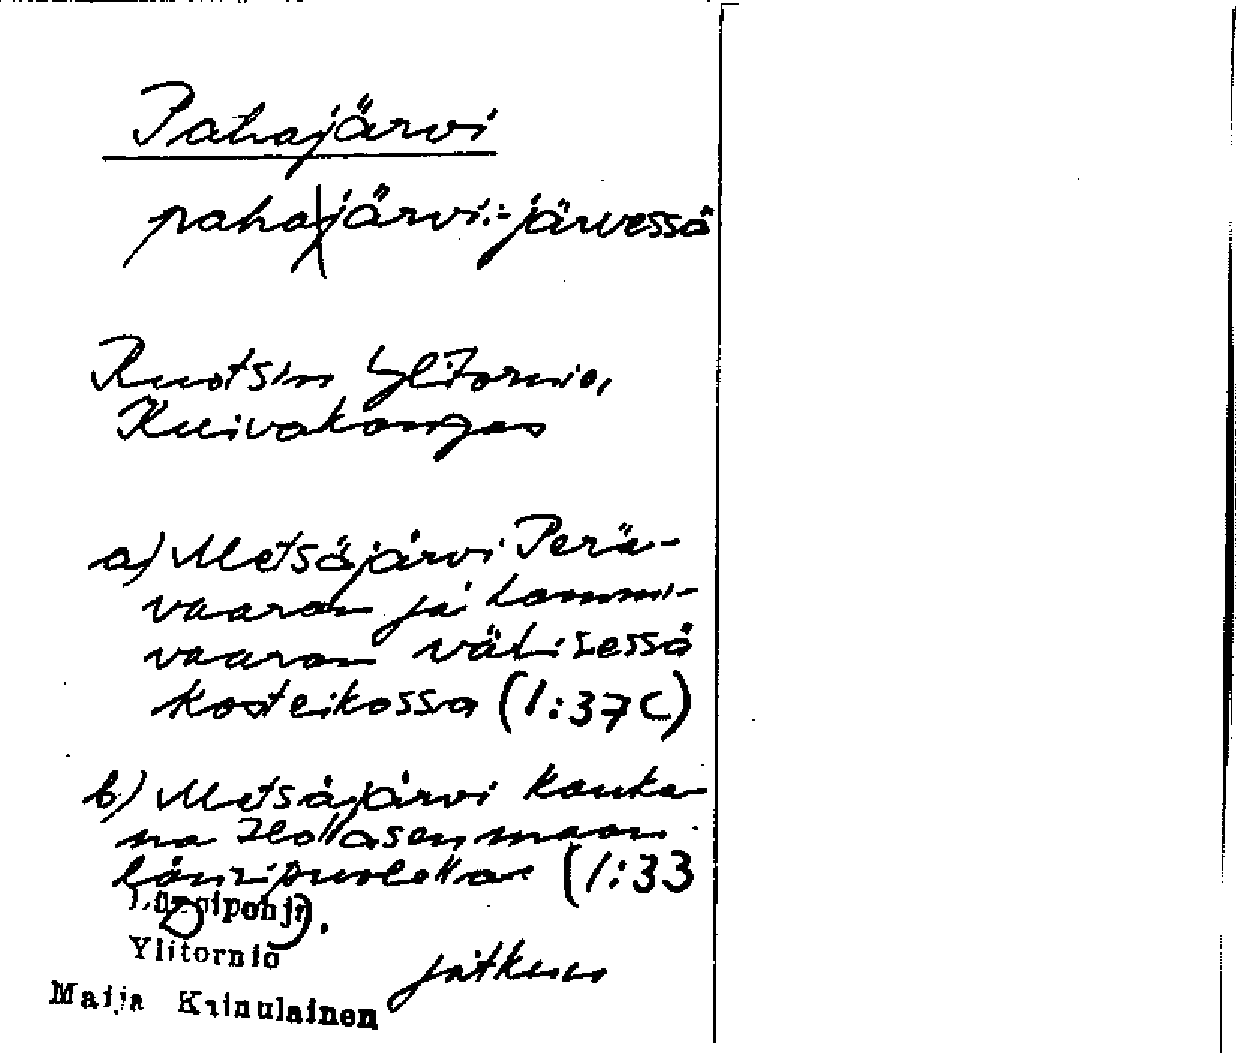 Pahajärvi
paha|järvi:-järvessä
Ruotsin Ylitornio,
Kuivakangas
a) Metsäjärvi Perä-
vaaran ja Lammi-
vaaran välisessä
kosteikossa (1:37C)
b) Metsäjärvi kauka-
na maan
länsipuolella (1:33
D).
Länsipohja
Ylitornio
jatkuu
Maija Kainulainen